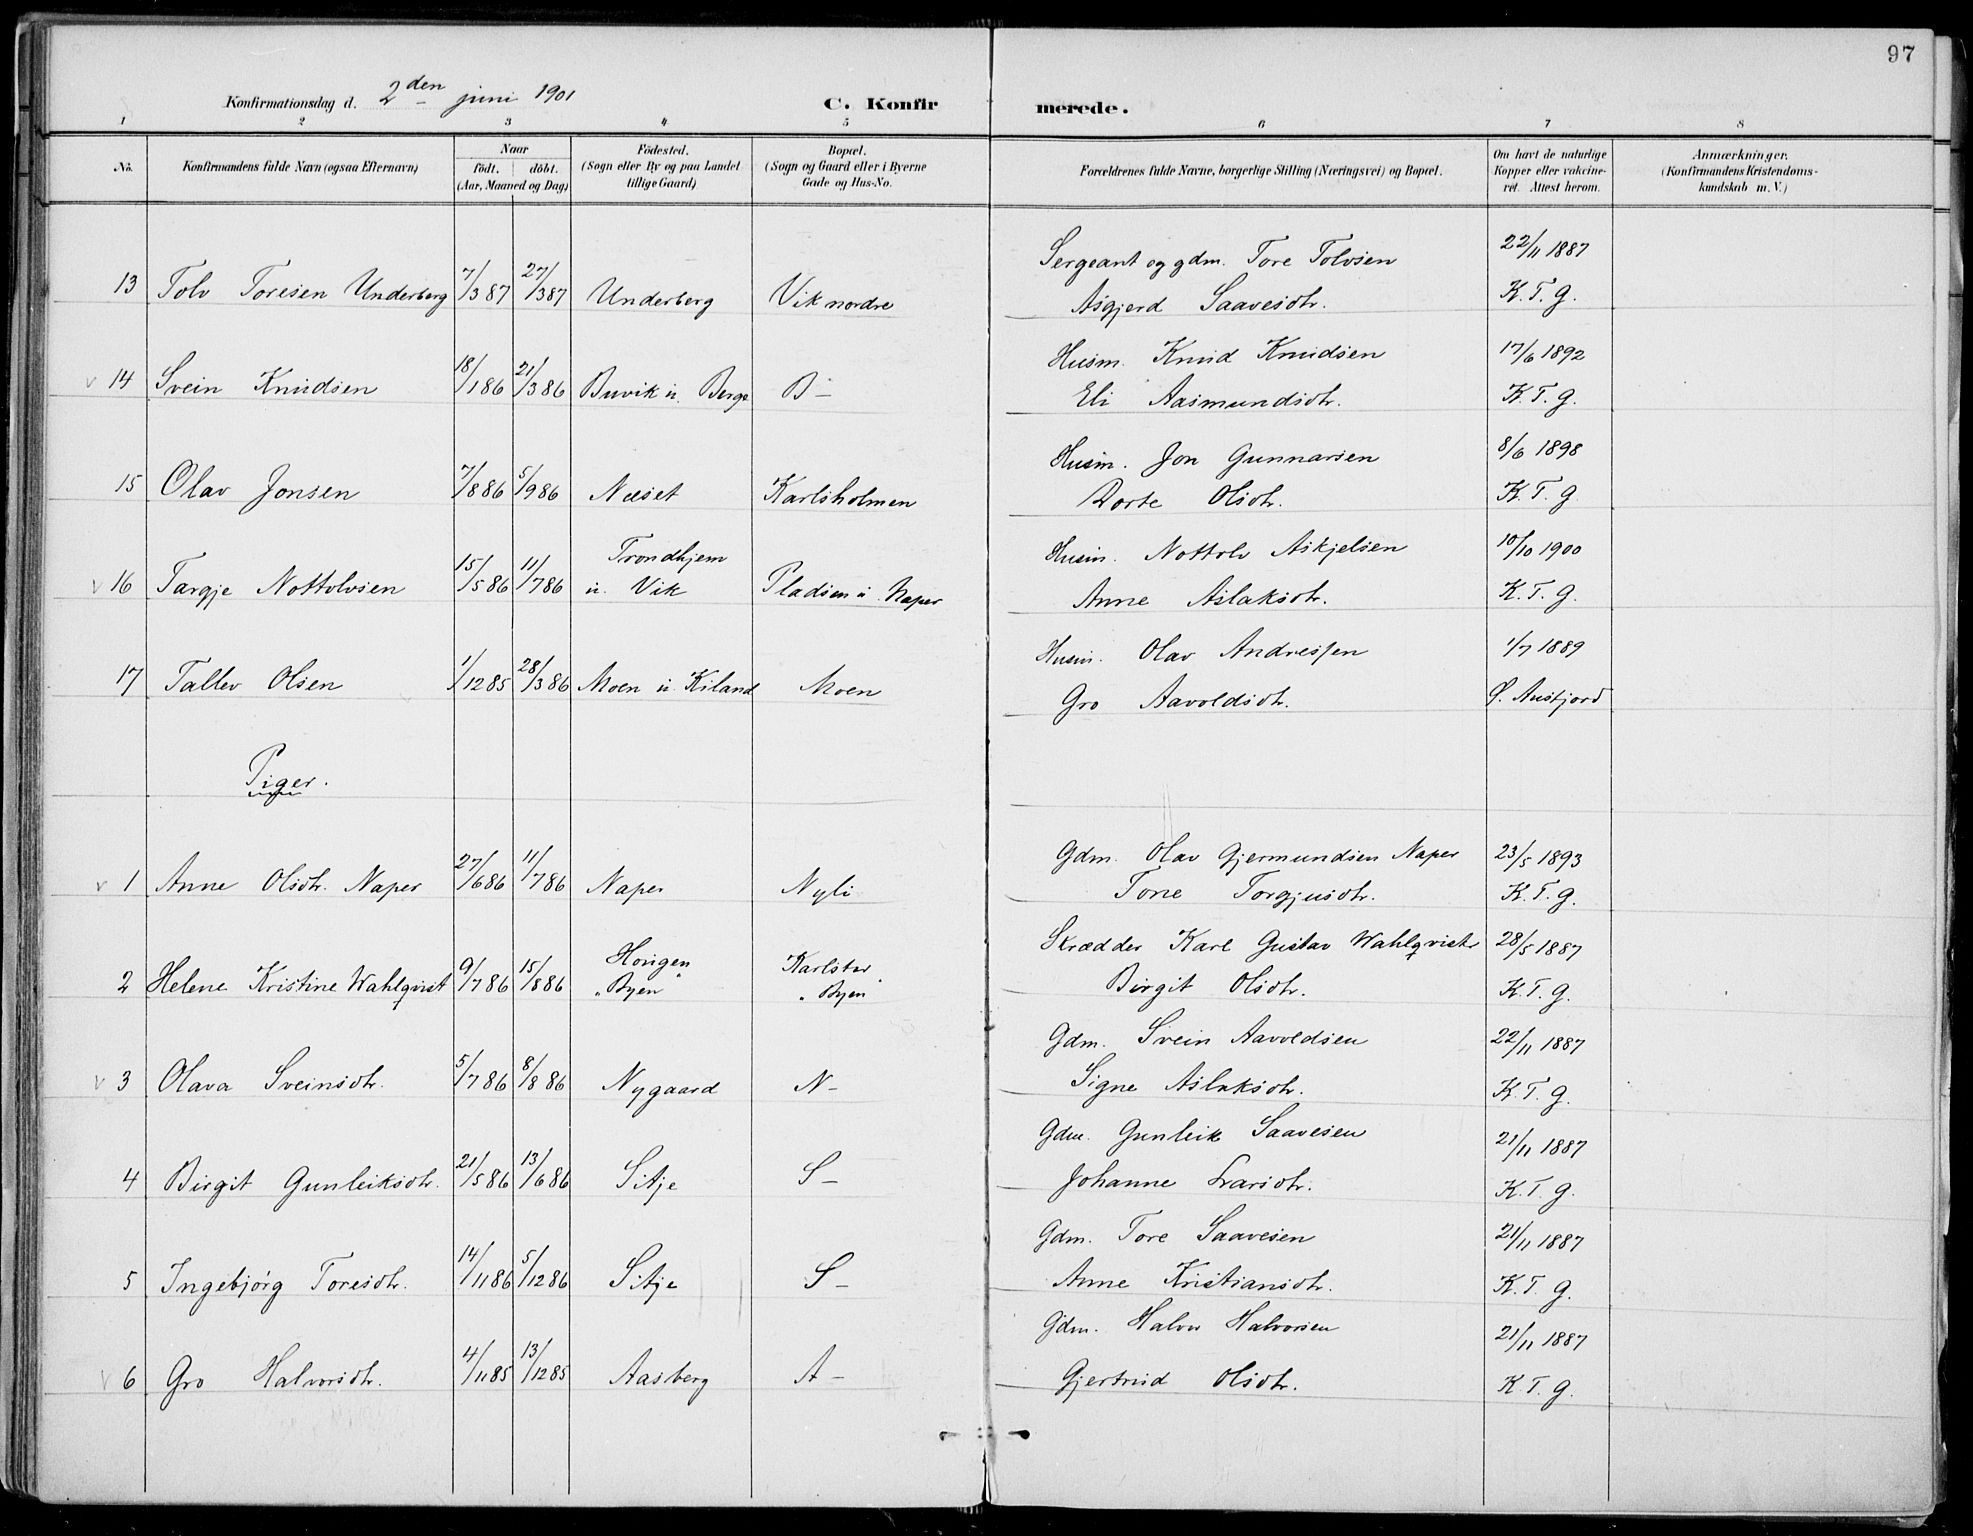 97
Konfirmationsdag d. 2den juni 1901 C. Konfirmerede.
1 2 3 4 5 6 7 8
No. Konfirmandens fulde Navn (ogsaa Efternavn) Naar födt. döbt. (Aar, Maaned og Dag) Födested. (Sogn eller By og paa Landet tillige Gaard) Bopæl. (Sogn og Gaard eller i Byerne Gade og Hus-No. Forældrenes fulde Navne, borgerlige Stilling (Næringsvei) og Bopæl. Om havt de naturlige Kopper eller vakcineret. Attest herom. Anmærkninger. (Konfirmandens Kristendomskundskab m. V.)
Sergeant og gdm. Tore Tolvsen 22/11 1887
13 Tolv Toresen Underberg 7/3 87 27/3 87 Underberg Vik nordre Asgjerd Saavesdtr. K. T. G.
Husm. Knud Knudsen 17/6 1892
v 14 Svein Knudsen 18/1 86 21/3 86 Buvik u. Berge B– Eli Aasmundsdtr. K. T. G.
Husm. Jon Gunnarsen 8/6 1898
15 Olav Jonsen 7/8 86 5/9 86 Næset Karlsholmen Dorte Olsdtr. K. T. G
Trondhjem Husm. Nottolv Askjelsen 10/10 1900
v 16 Targje Nottolvsen 15/5 86 11/7 86 u. Vik Pladsen u. Naper Anne Aslaksdtr. K. T. G.
Husm. Olav Andressen 1/7 1889
17 Tallev Olsen 1/12 85 28/3 86 Moen u. Kiland Moen Gro Aavoldsdtr. Ø. Austjord
Piger.
Gdm. Olav Gjermundsen Naper 23/5 1893
v 1 Anne Olsdtr. Naper 27/6 86 11/7 86 Naper Nyli Tone Torgjusdtr. K. T. G.
Horigen Karlstu Skrædder Karl Gustav Wahlqvist 28/5 1887
2 Helene Kristine Wahlqvist 9/7 86 15/8 86 „Byen" „Byen" Birgit Olsdtr. K. T. G.
Gdm. Svein Aavoldsen 22/11 1887
v 3 Olava Sveinsdtr. 5/7 86 8/8 86 Nygaard N– Signe Aslaksdtr. K. T. G.
Gdm. Gunleik Saavesen 21/11 1887
4 Birgit Gunleiksdtr. 21/5 86 13/6 86 Sitje S– Johanne Larsdtr. K. T. G.
Gdm. Tore Saavesen 21/11 1887
5 Ingebjørg Toresdtr. 14/11 86 5/12 86 Sitje S– Anne Kristiansdtr. K. T. G.
Gdm. Halvor Halvorsen 21/11 1887
v 6 Gro Halvorsdtr. 4/11 85 13/12 85 Aasberg A– Gjertrud Olsdtr. K. T. G.